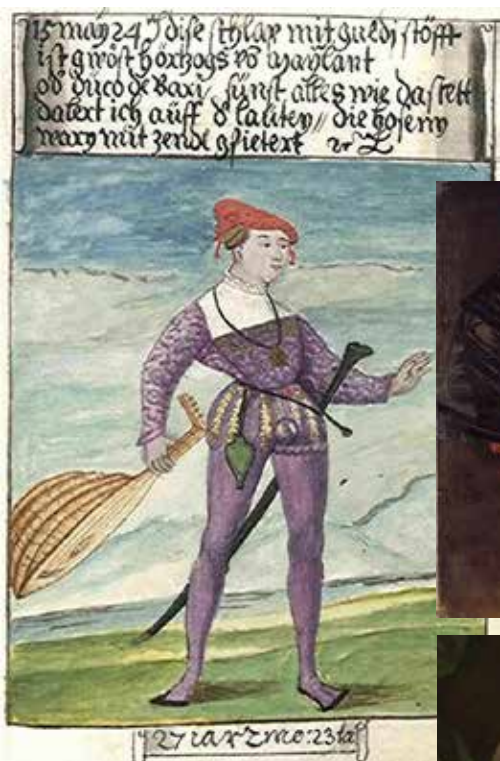 15 may 24 Jdise schlap mit guldi stöfft
ist gwöst hörtzogs vō maylant
od duco de Bari / sunst alles wie da stett
daert ich auff d lautey // die hosen
warn mit zendl gfietert
27 iar 2 mo: 23 ta